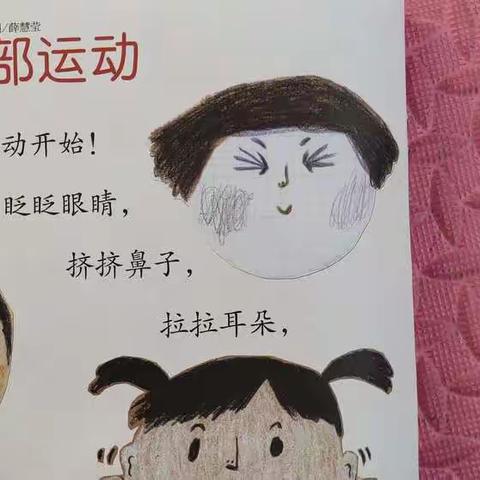 /薛慧莹
部运动
动开始！
眨眨眼睛，
挤挤鼻子，
拉拉耳朵，